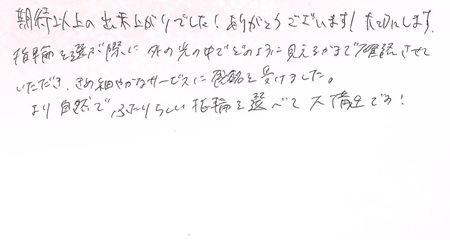 期待以上の出来上がりでした!ありがとうございます!大切にします。
指輪を選ぶ際に外の光の中でどのように見えるかまで確認させて
いただき、きめ細やかなサービスに感銘を受けました。
より自然でふたりらしい指輪を選べて大満足です!